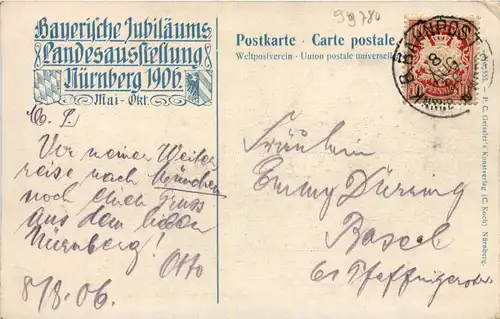 99780
Bayerische Jubiläums
Landesausstellung
Nürnberg 1906.
Mai - Okt.
Postkarte · Carte postale
Weltpostverein - Union postale universelle
BAHNPOST
P. C. Geissler's Kunstverlag (C. Koch) Nürnberg.
L. E.
Vor meiner Weiter
reise nach München
noch einen Gruss
aus dem lieben
Nürnberg!
Otto
8/8.06.
Fräulein
Emmy Düring
Basel